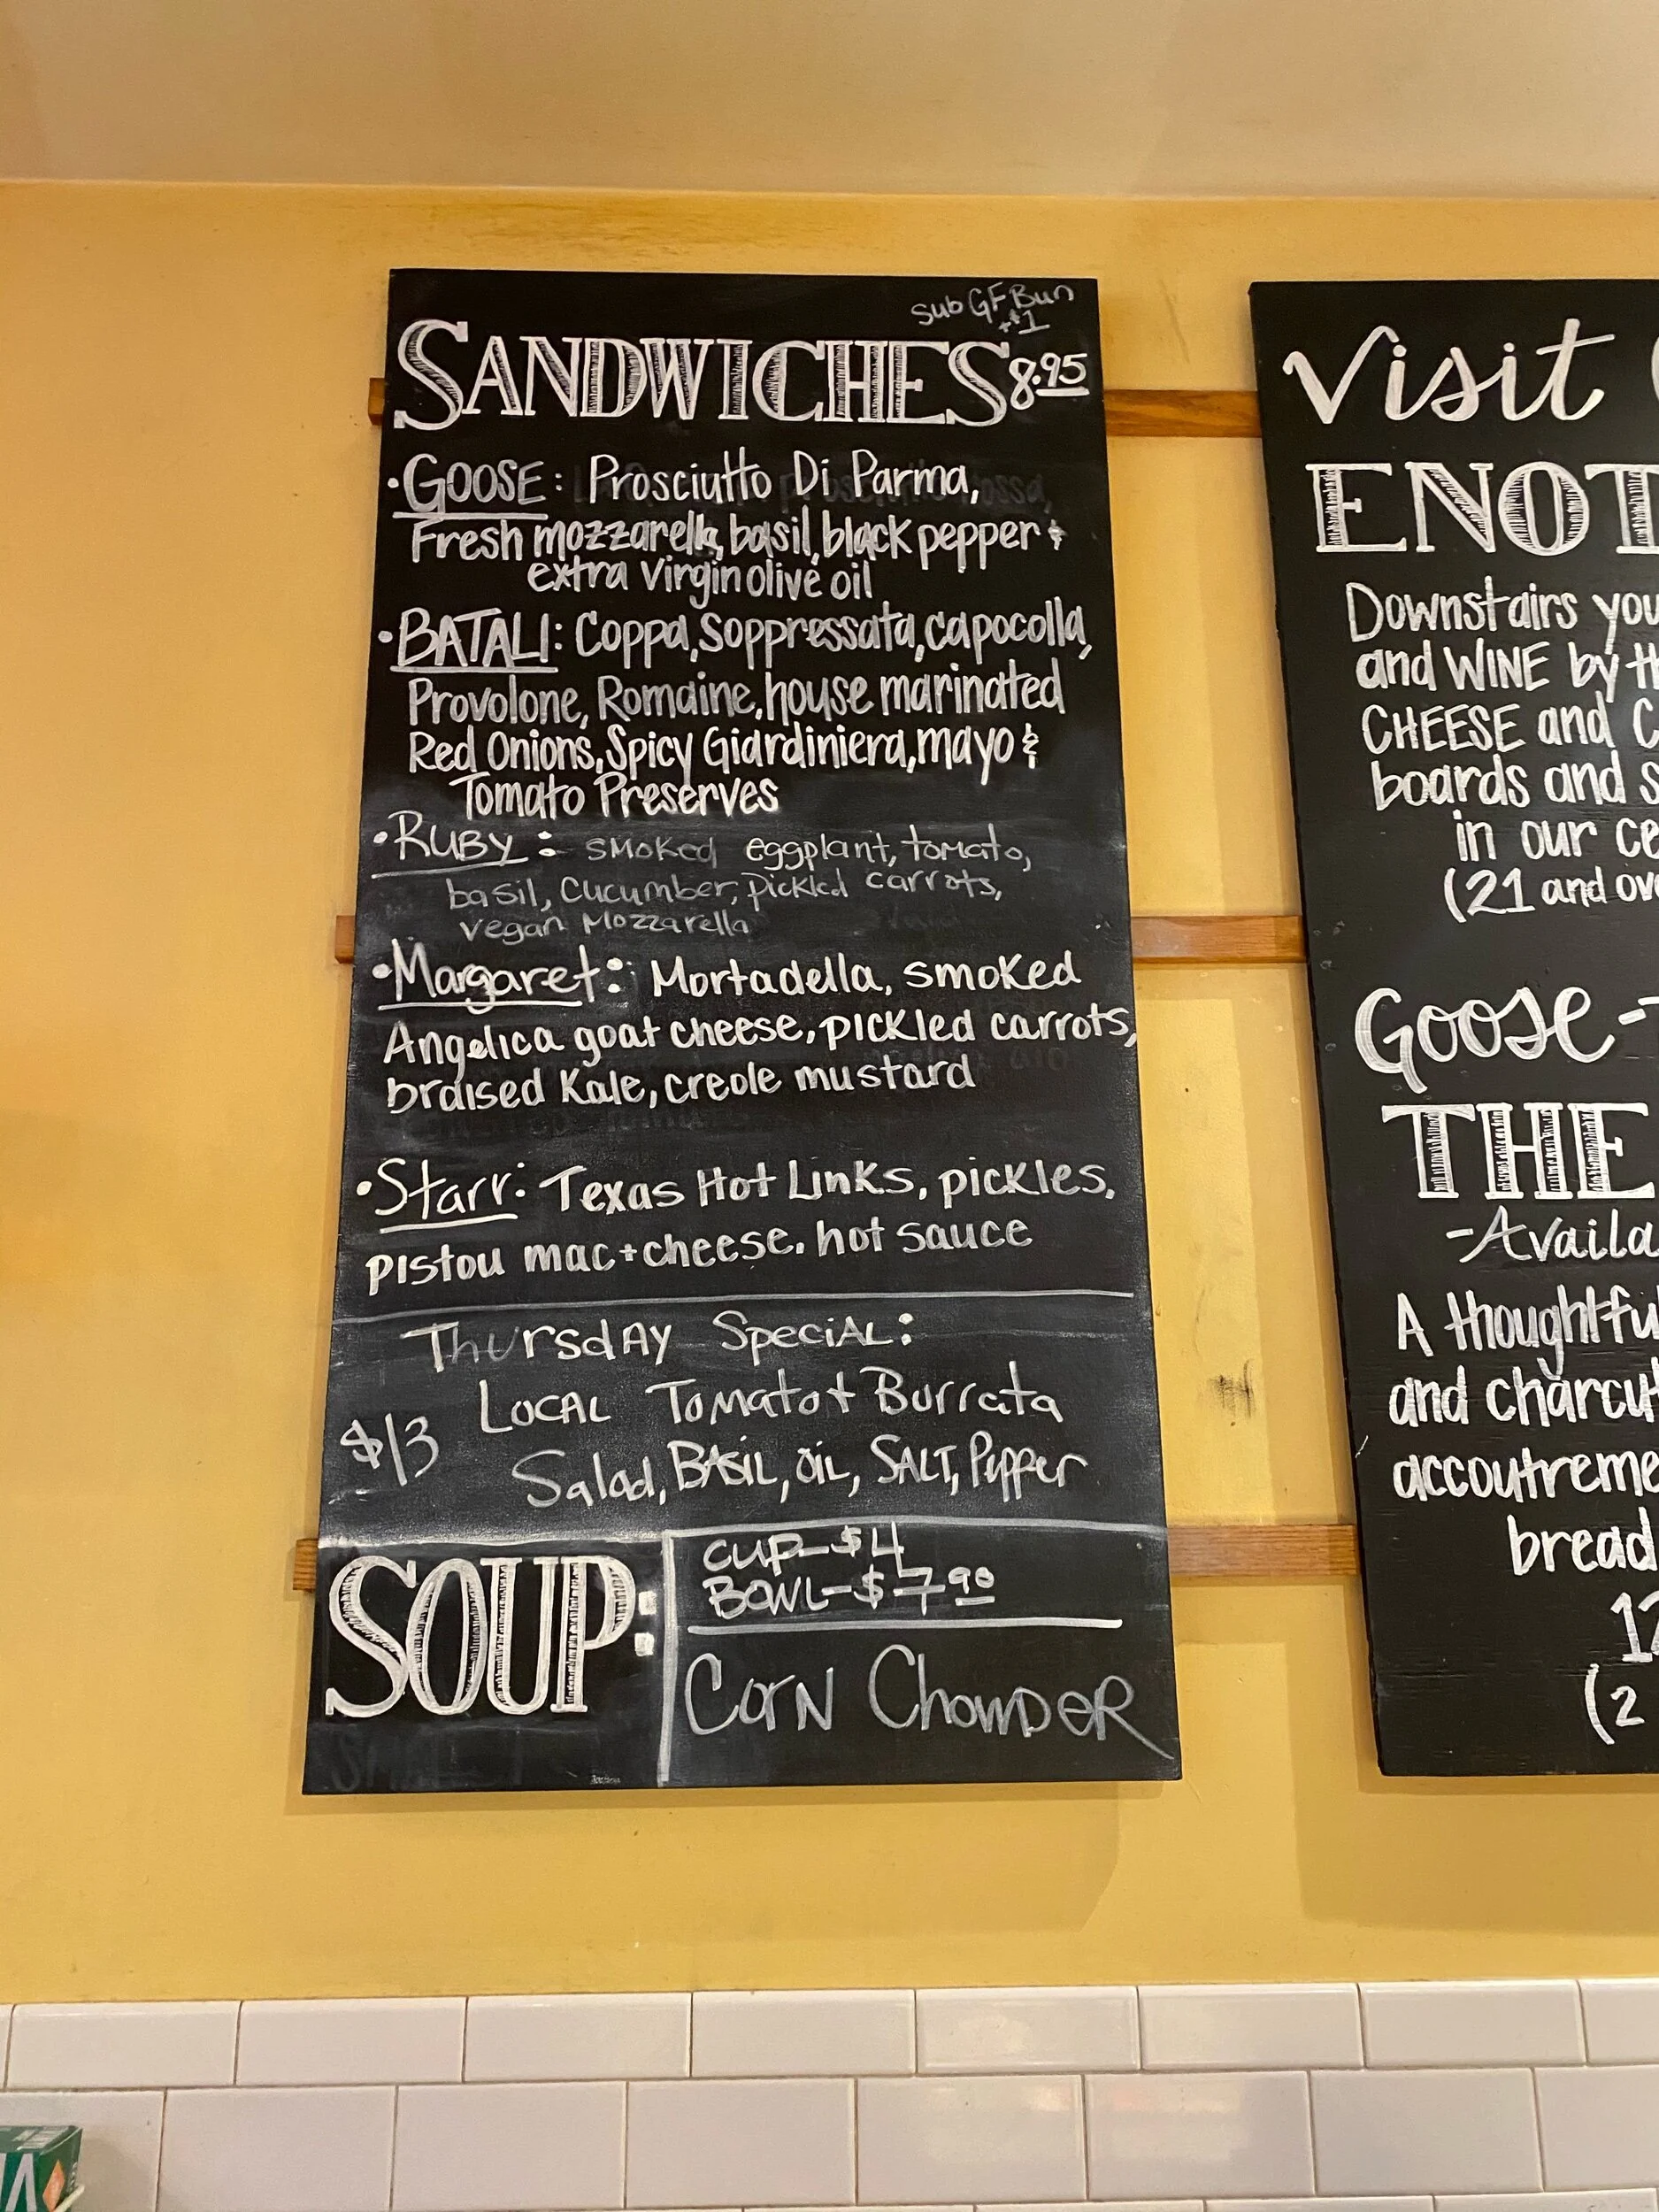 Sub GF Bun
+$1
SANDWICHES 8.95
• GOOSE: Prosciutto Di Parma,
Fresh mozzarella, basil, black pepper &
extra virgin olive oil
• BATALI: Coppa, Soppressata, capocolla,
Provolone, Romaine, house marinated
Red Onions, Spicy Giardiniera, mayo &
Tomato Preserves
• RUBY: smoked eggplant, tomato,
basil, cucumber, pickled carrots,
vegan Mozzarella
• Margaret: Mortadella, smoked
Angelica goat cheese, pickled carrots,
braised Kale, creole mustard
• Starr: Texas Hot Links, pickles,
pistou mac+cheese, hot sauce
Thursday Special:
LOCAL Tomato + Burrata
$13
Salad, BASIL, oil, SALT, Pepper
SOUP:
CUP-$4
BOWL-$7.90
Corn Chowder
Visit
ENOT
Downstairs you
and WINE by th
CHEESE and C
boards and s
in our ce
(21 and ov
Goose-
THE
-Availa
A thoughtfu
and charcut
accoutreme
bread
12
(2